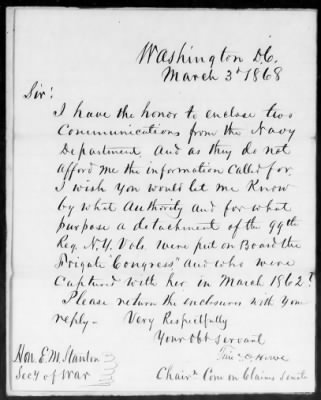 Washington D.C.
March 3d 1868
Sir:
I have the honor to enclose two
Communications from the Navy
Department and as they do not
afford me the information Called for,
I wish you would let me know
by what Authority and for what
purpose a detachment of the 99th
Reg. N.Y. Vols. were put on Board the
Frigate "Congress" and who were
Captured with her in March 1862?
Please return the enclosures with your
reply— Very Respectfully
Your Obt Servant
Howe
Hon. E. M. Stanton
Secy of War
Chairn Com on Claims Senate